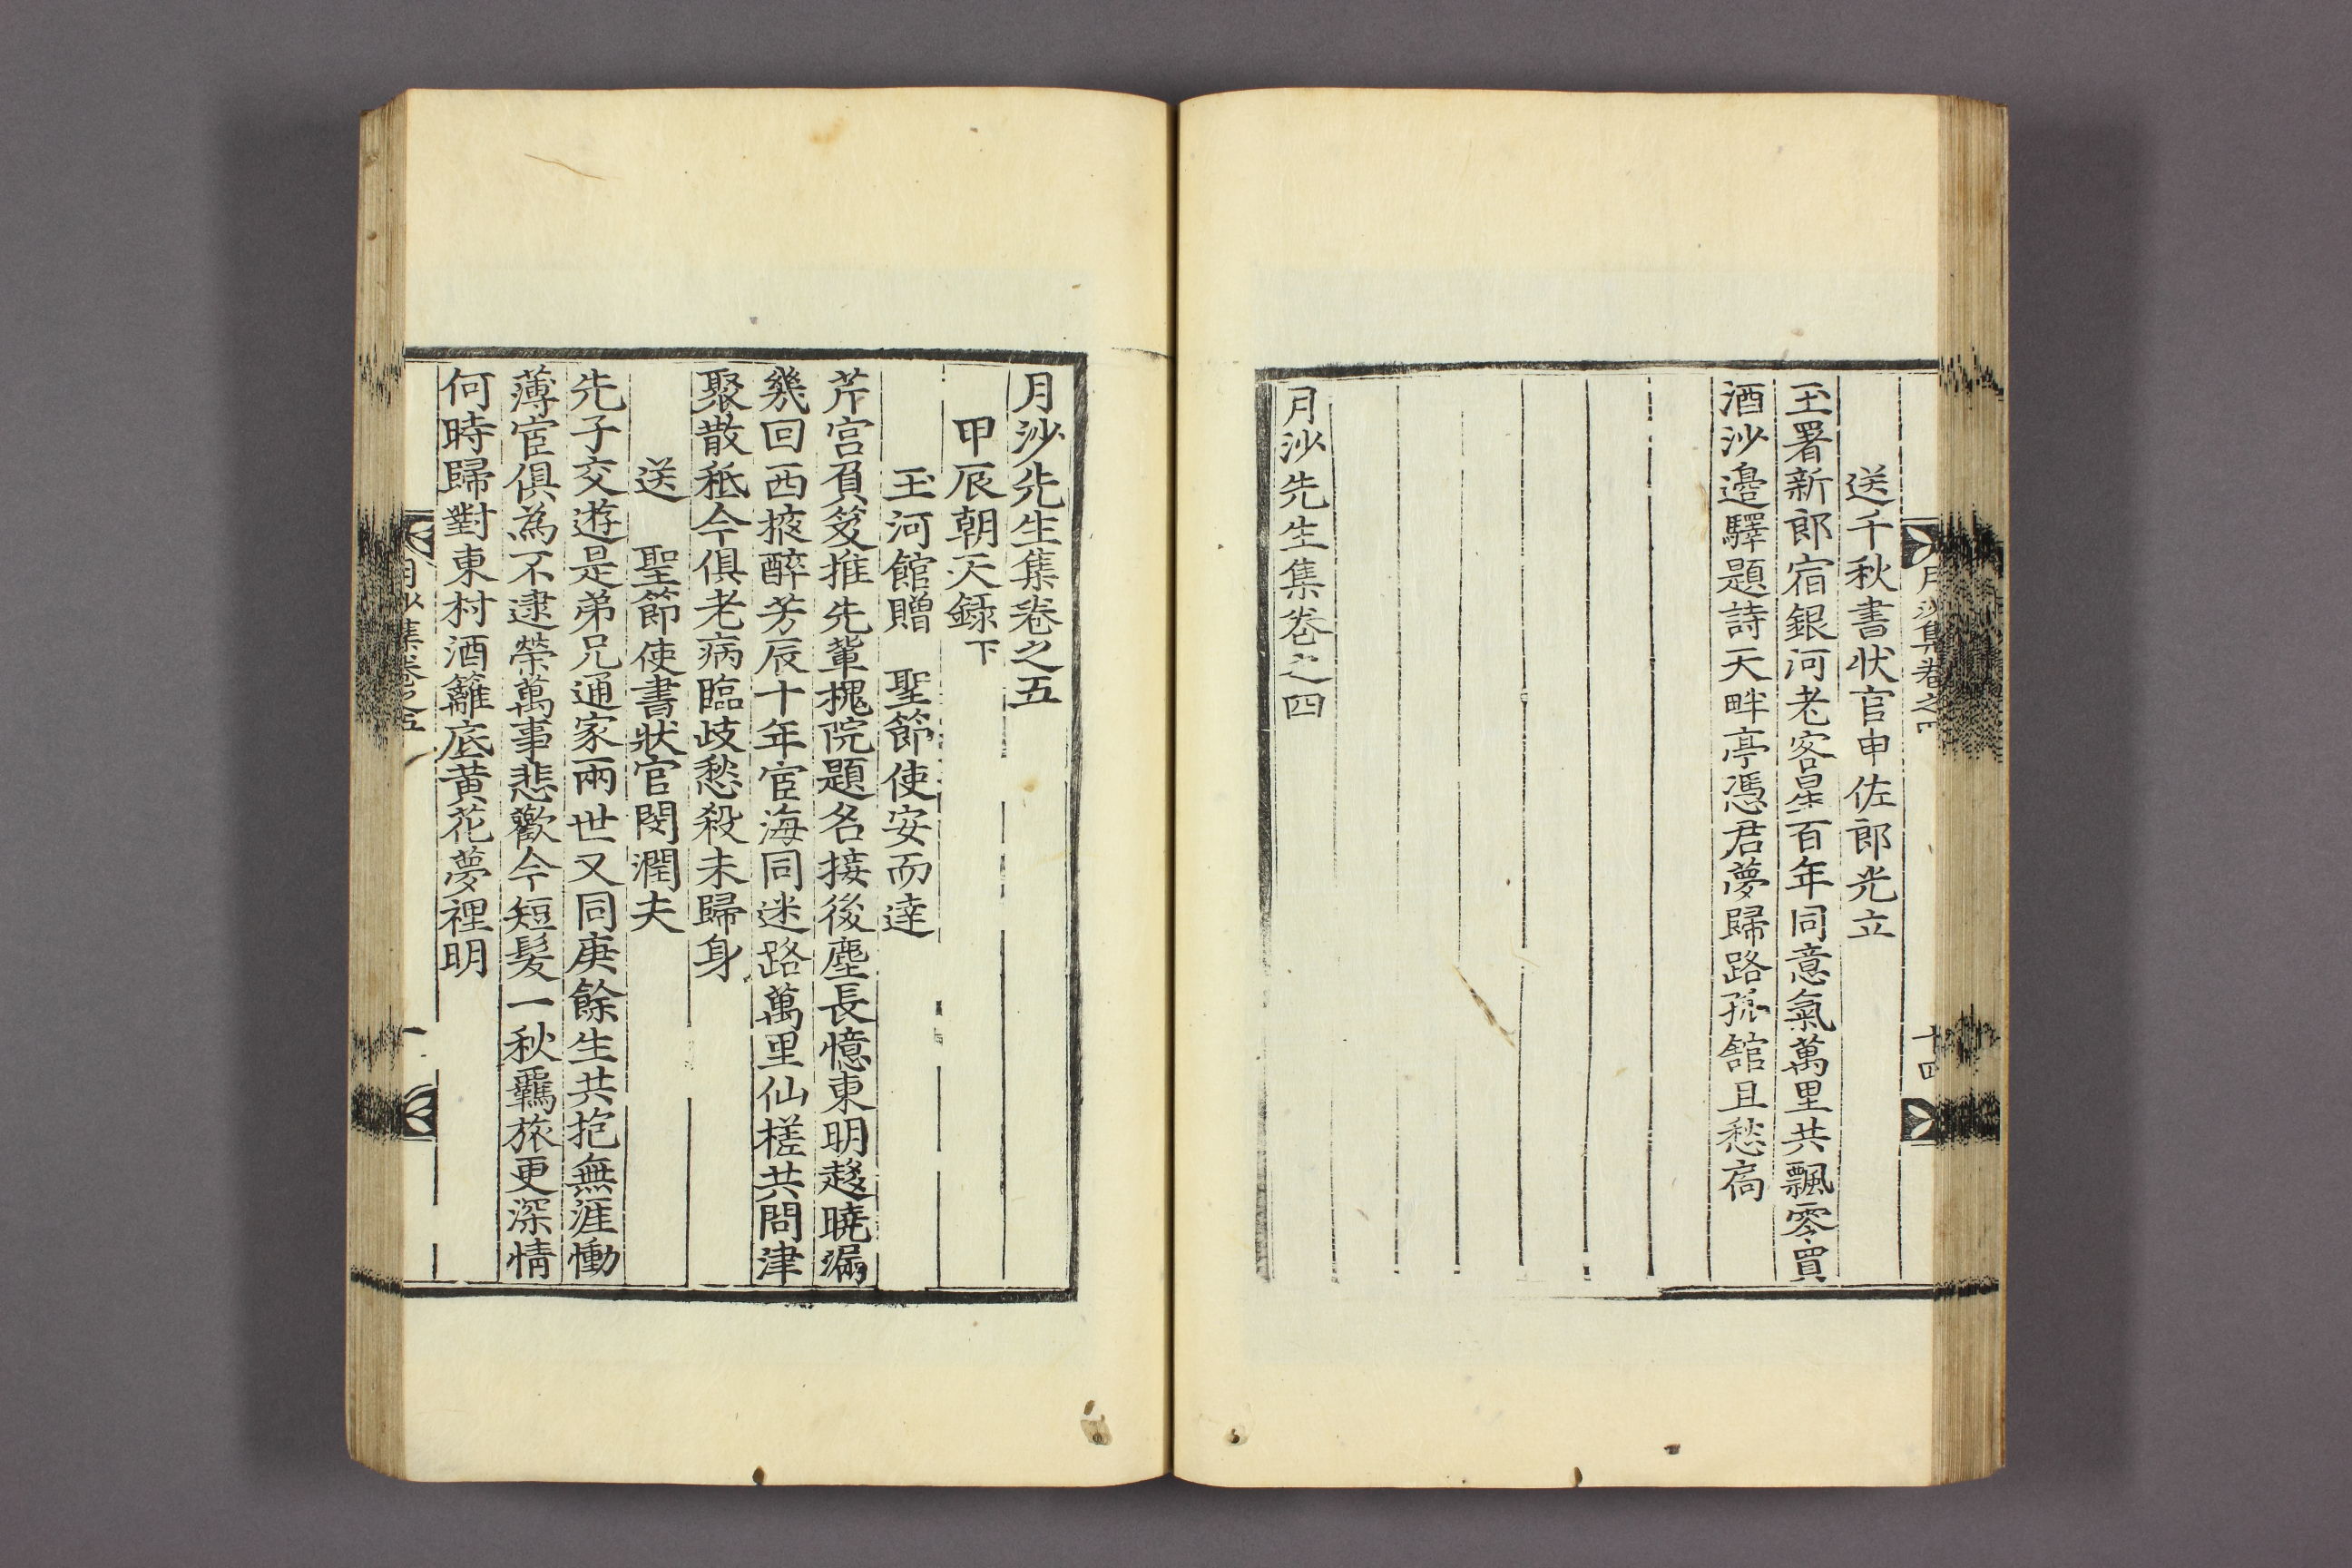 月沙集卷之四
十四
送千秋書狀官申佐郎光立
玉署新郎宿銀河老客星百年同意氣萬里共飄零買
酒沙邊驛題詩天畔亭憑君夢歸路孤館且愁扃
月沙先生集卷之四
月沙先生集卷之五
甲辰朝天錄下
玉河館贈 聖節使安而達
芹宮負笈推先輩槐院題名接後塵長憶東明趍曉漏
幾回西掖醉芳辰十年宦海同迷路萬里仙槎共問津
聚散秪今俱老病臨歧愁殺未歸身
送 聖節使書狀官閔潤夫
先子交遊是弟兄通家兩世又同庚餘生共抱無涯慟
薄宦俱為不逮榮萬事悲歡今短髮一秋羈旅更深情
何時歸對東村酒籬底黃花夢裡明
月沙集卷之五
一